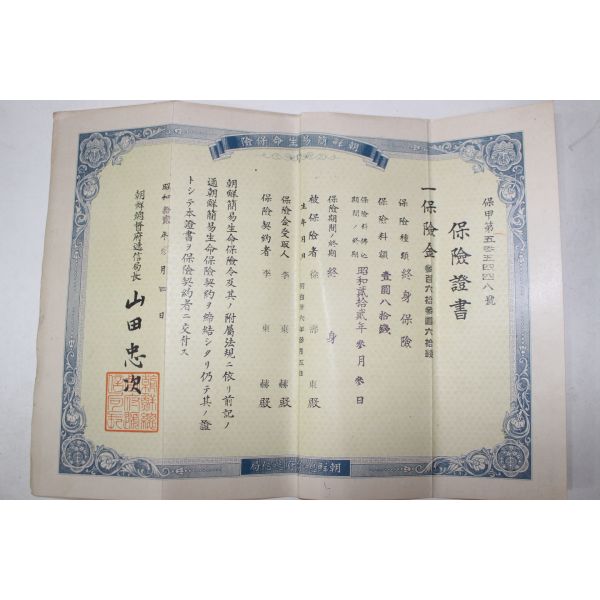 朝鮮簡易生命保險
保甲第五 四四八號
保險證書
一保險金
保險種類 終身保險
保險料額 壹圓八拾錢
保險料拂込期間ノ終期 昭和貳拾貳年參月參日
保險期間ノ終期 終身
被保險者 徐 東殿
生年月日
保險金受取人 李東赫殿
保險契約者 李東赫殿
朝鮮簡易生命保險令及其ノ附屬法規ニ依リ前記ノ
通朝鮮簡易生命保險契約ヲ締結シタリ仍テ其ノ證
トシテ本證書ヲ保險契約者ニ交付ス
昭和拾貳年 月四日
朝鮮總督府遞信局長 山田忠次